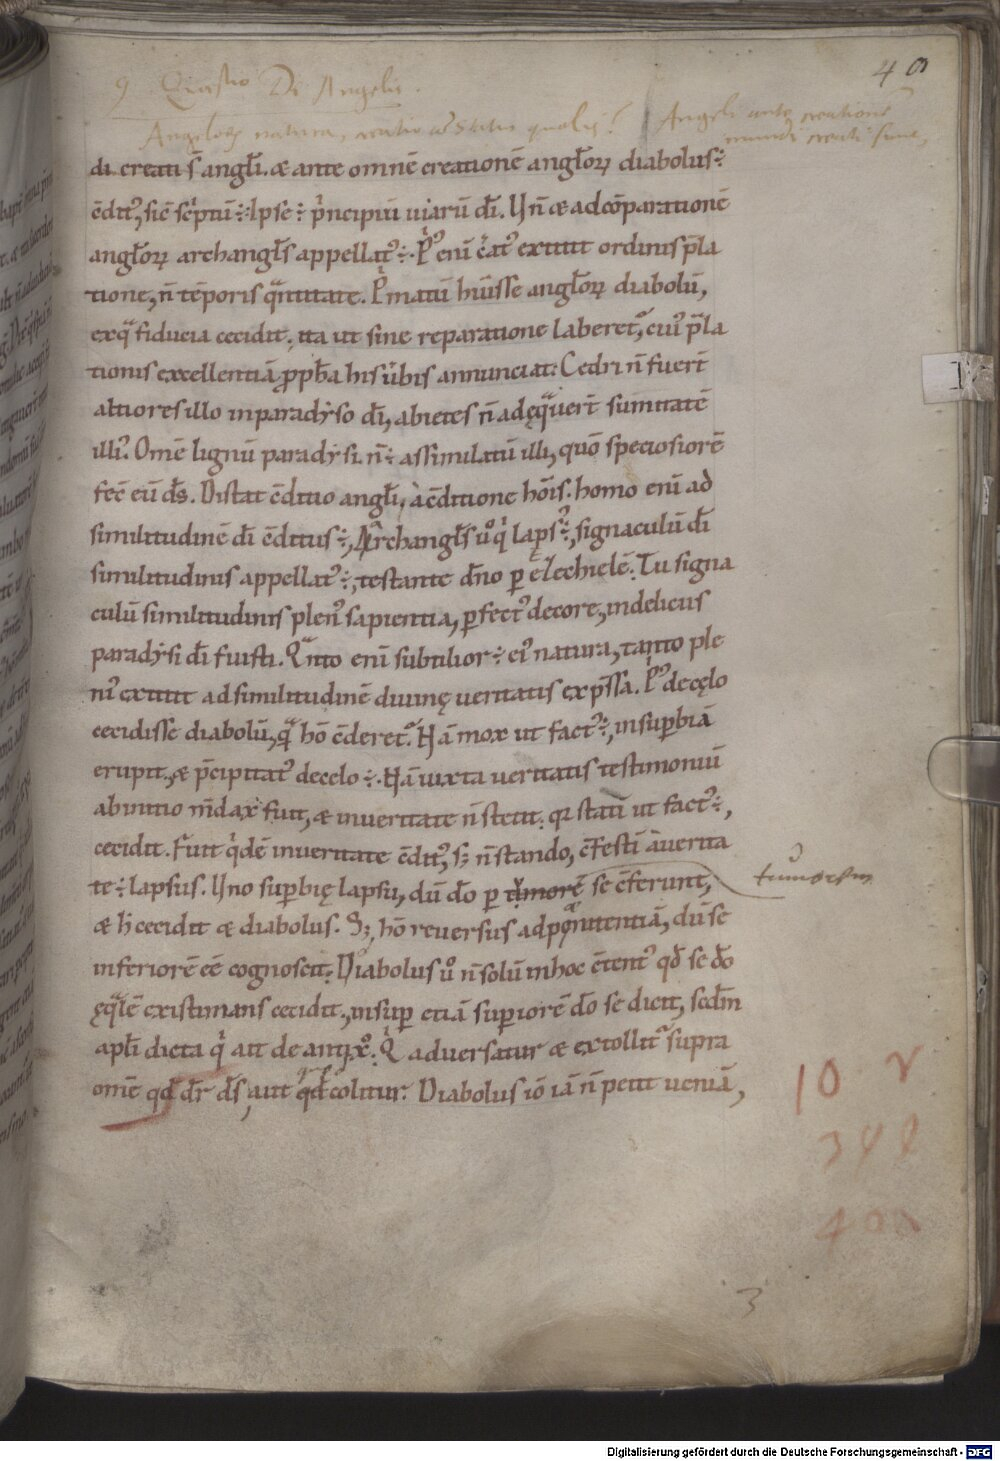 40
9 Quæstio De Angelis.
Angelorꝫ natura, creatio et status qualis? Angeli ante creatione
mundi creati sunt,
di creati s̄ angl̄i. æ ante omnē creationē angl̄oꝝ diabolus÷
c̄dit᾽, sic̄ sc̄ptū÷ Ipse÷ p̄ncipiū uiarū dī. Vn̄ æ ad cōparationē
angl̄oꝝ archangl̄s appellat᾽÷ P᾽ enī c̄at᾽ extitit ordinis p̄la
tione, n̄ tēporis q̄ntitate. Pmatū hūisse angl̄oꝝ diabolū,
ex q̄ fiducia cecidit, ita ut sine reparatione laberet᾽, cui᾽ p̄la
tionis excellentiā ꝓpħa his ūbis annunciat. Cedri n̄ fuer̄
altiores illo in paradẏso dī, abietes n̄ adęq̄uer̄ sūmitatē
illi᾽. Om̄e lignū paradẏsi n̄÷ assimilatū illi, quō speciosiorē
fec̄ eū d̄s. Distat c̄ditio angl̄i, a c̄ditione hōis. homo enī ad
similitudinē dī c̄ditus÷, Archangl̄s ūo qi laps᾽÷, signaculū dī
similitudinis appellat᾽÷, testante dn̄o ꝑ Ezechielē. Tu signa
culū similitudinis plen᾽ sapientia, ꝑfect᾽ decore, in deliciis
paradẏsi dī fuisti. Q̄nto enī subtilior÷ ei᾽ natura, tanto ple
ni᾽ extitit ad similitudinē diuinę ueritatis exp̄ssa. P᾽ de cęlo
cecidisse diabolū, q̄ hō c̄deret᾽. Nā mox ut fact᾽÷, in suꝑbiā
erupit, æ p̄cipitat᾽ de celo÷. Nā iuxta ueritatis testimoniū
ab initio m̄dax fuit, æ in ueritate n̄ stetit. qr statī ut fact᾽÷,
cecidit. Fuit q̄dē in ueritate c̄dit᾽, s; n̄ stando, c̄festī a uerita
te÷ lapsus. Uno suꝑbię lapsu, dū dō ꝑ timorē se c̄ferunt, tumorem
æ h̄ cecidit æ diabolus. S;, hō reuersus ad pęnitentiā, dū se
inferiorē eē cognoscit. Diabolus ūo n̄ solū in hoc c̄tent᾽ qd̄ se dō
ęq̄lē existimans cecidit, insuꝑ etiā suꝑiorē dō se dicit, scdm̄
apl̄i dicta qi ait de antixp̄o. Q̄ aduersatur æ extollit᾽ supra
om̄e qd̄ dr̄ d̄s, aut qd̄ colitur. Diabolus iō iā n̄ petit ueniā,
10 r
3
Digitalisierung gefördert durch die Deutsche Forschungsgemeinschaft - DFG